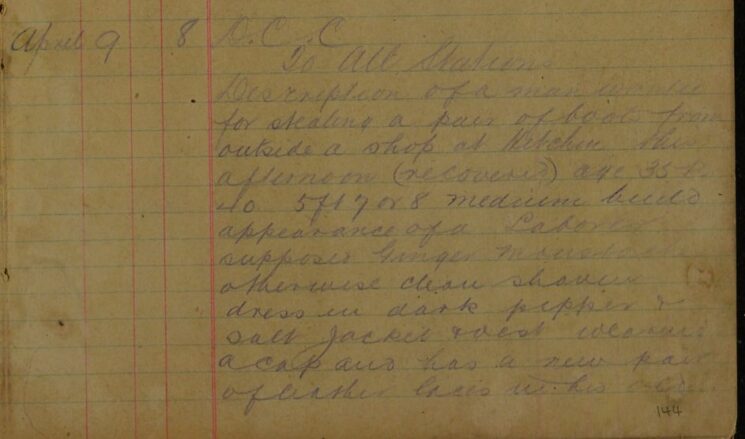 April 9 8 D.C.C
To All Stations
Description of a man wanted
for stealing a pair of boots from
outside a shop at Hitchin this
afternoon (recovered) age 35 to
40 5ft 7 or 8 medium build
appearance of a Laborer
supposed Ginger Moustache
otherwise clean shaven
dress in dark pepper &
salt Jacket & vest wearing
a cap and has a new pair
of leather laces in his
144